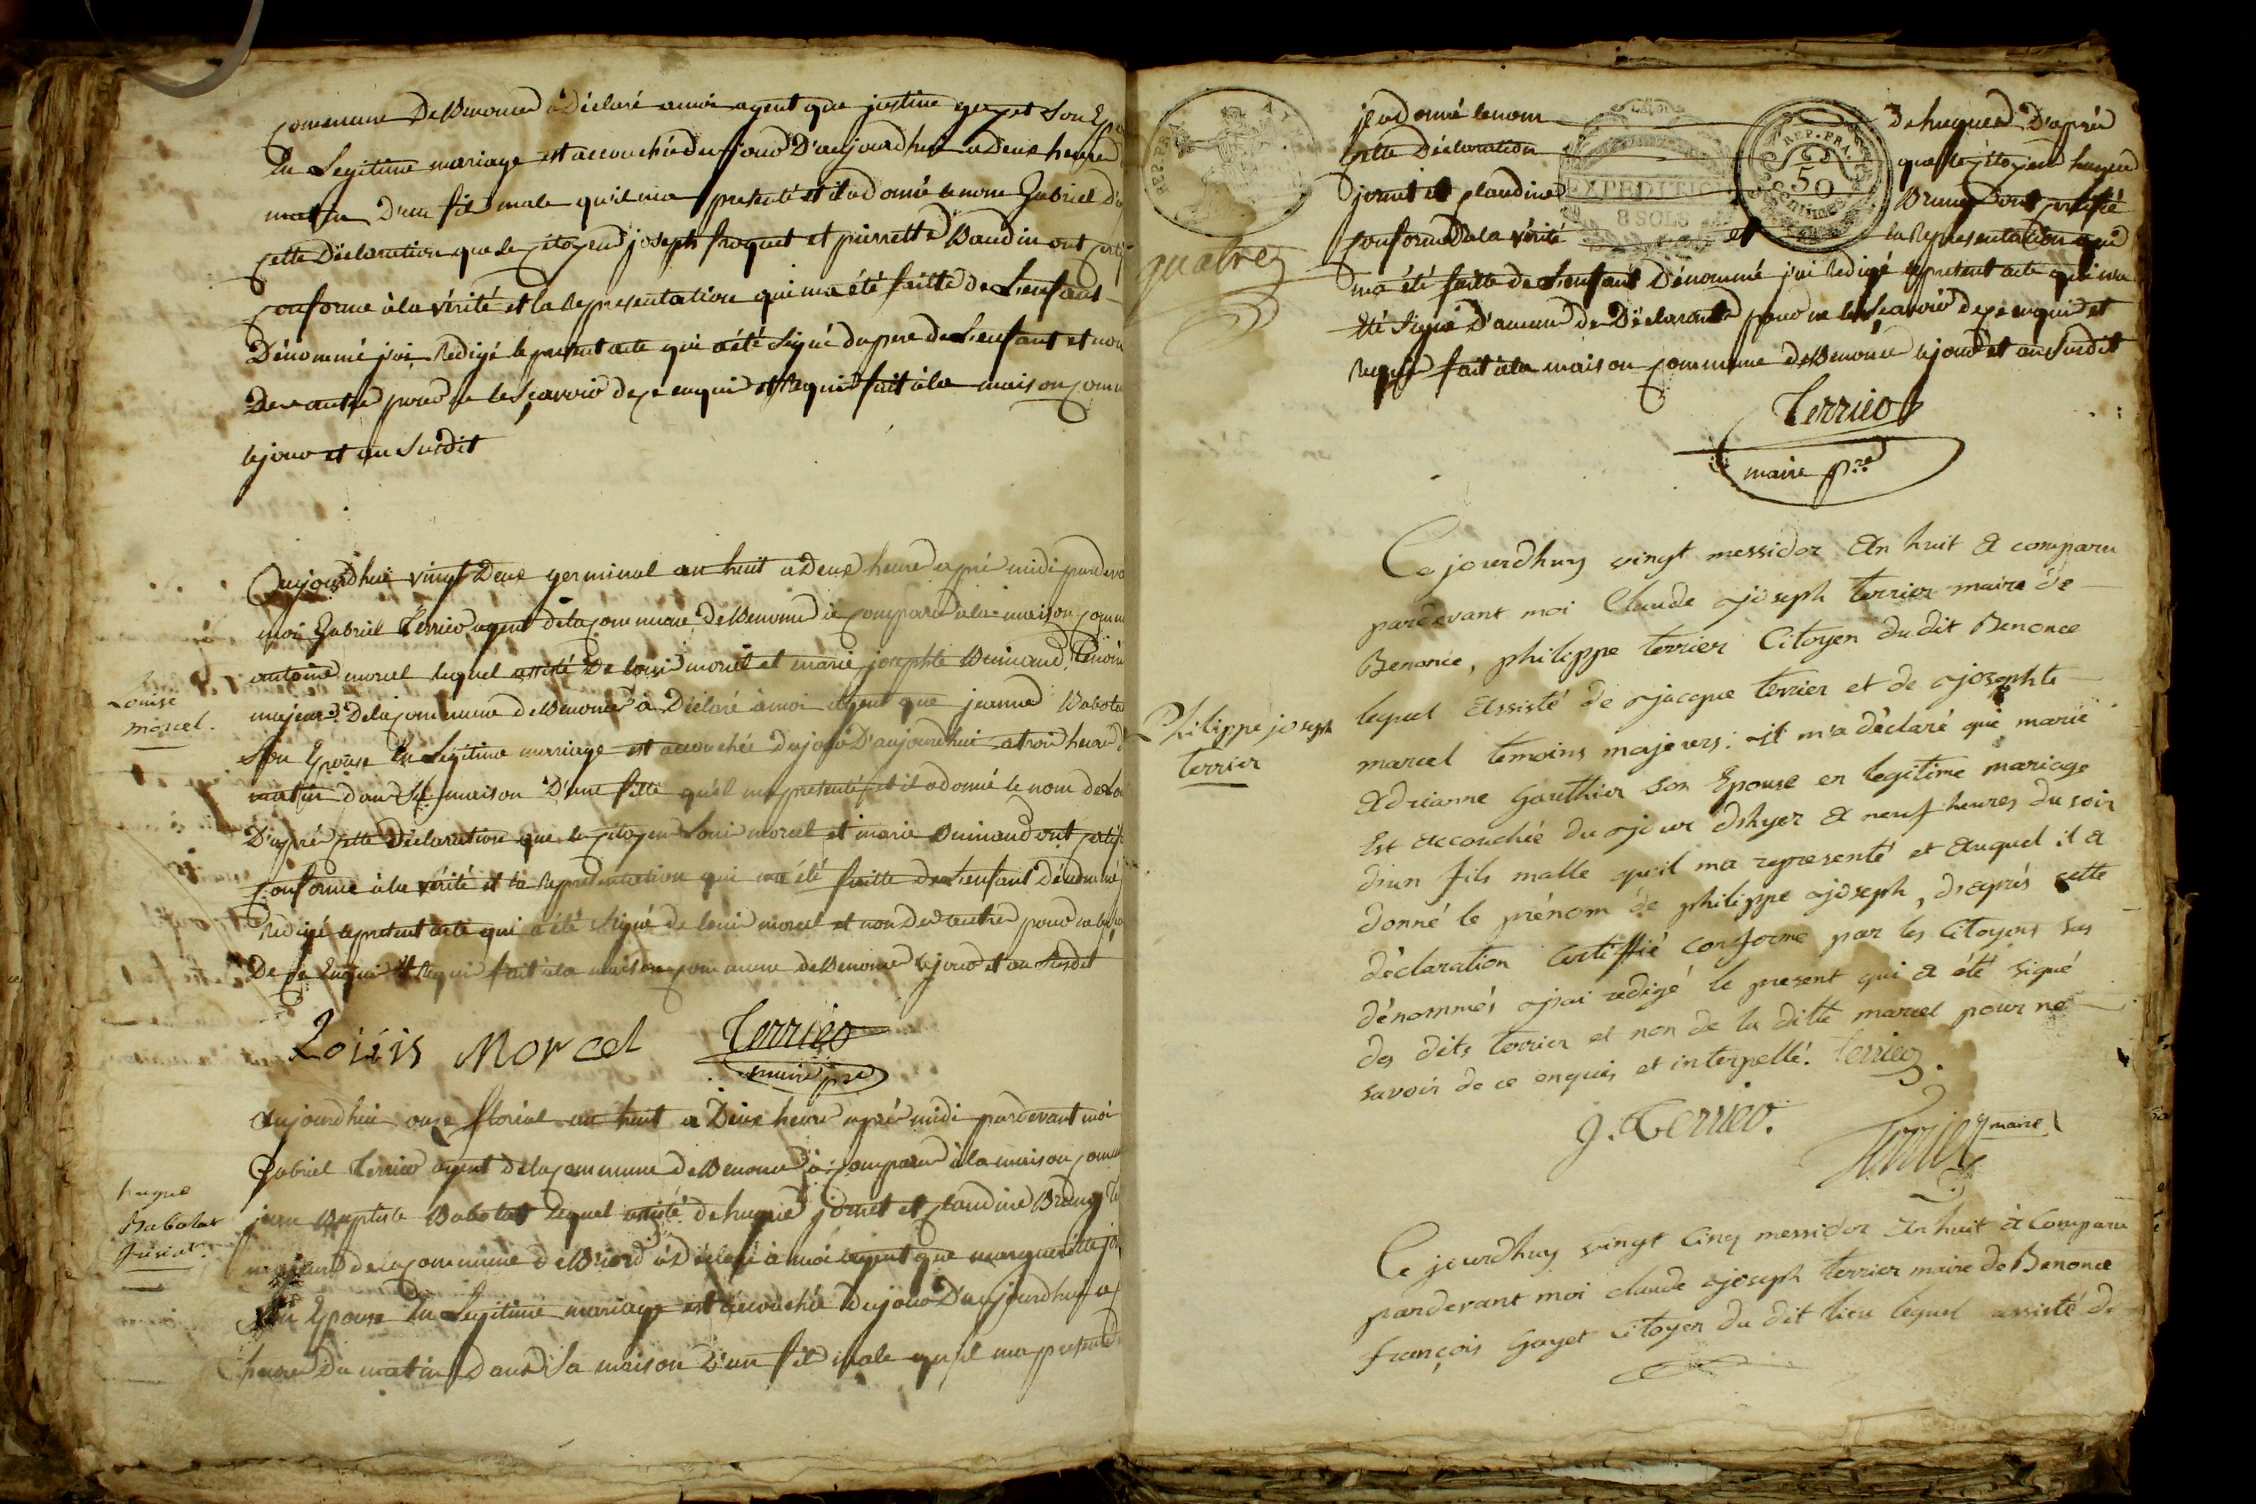 commune De Benonce a Déclaré a moi agent que justine geget son Epo
En Legitime mariage est accouchée du jour D'aujourdhui a deux heure
matin D'un fil male qu'il m'a presenté et il a donné le nom Gabriel D'a
cette Déclaration que le citoyen joseph froquet et pierrette Baudin ont certif
conforme à la vérité et la Représentation qui m'a été faitte de L'enfant
Dénommé j'ai Redigé le present acte qui a été signé du pere de L'enfant et non
Des autre pour ne le sçavoir de ce enqui et Requi fait à la maison comm
le jour et an Susdit
Louise
morcel.
Aujourdhui vingt Deux germinal an huit a Deux heure apré midi pardeva
moi Gabriel Terrier agent de la commune de Benonce a comparu a la maison comm
antoine morcel lequel assisté De loui morcel et marie josephte Buinand Témoin
majeur De la commune de Benonce a Déclaré a moi agent que jeanne Babola
son Epouse En Legitime marriage est accouchée du jour D'aujourdhui a troi heure d
matin dans sa maison D'une fille qu'il m'a presenté et il a donné le nom de Lo
D'apré cette Déclaration que le citoyen Loui morcel et marie Buinand ont certif
conforme à la vérité et la Représentation qui m'a été faitte de L'enfant Dénommé
Redigé le present acte qui a été signé de loui morcel et non des autre pour ne le sça
De ce Enqui et Requi fait à la maison commune de Benonce le jour et an Susdit
Loüis Morcel Terrier
maire pre
hugue
Babolat
Aujourdhui onze floréal an huit a Deux heure apré midi pardevant moi
Gabriel Terrier agent de la commune de Benonce a comparu à la maison comm
jean Baptiste Babolat lequel assisté de hugue jornet et claudine Brung Té
majeur de la commune de Briord a Déclaré à moi agent que margueritte jor
son Epouse En Legitime mariage est accouchée du jour D'aujourdhui a
heure du matin Dans Sa maison D'un fil male qu'il m'a presenté
quatre
je a donné le nom de hugues D'aprée
cette Déclaration que le citoyen hugue
jornet et claudine Brung ont certifié
conforme à la vérité et la Représentation qui
m'a été faitte de L'enfant Dénommé j'ai Redigé le present acte qui n'a
Eté signé D'aucun de Déclarante pour ne le sçavoir de ce enqui et
Requi fait à la maison commune de Benonce le jour et an Susdit
EXPEDITION
8 SOLS
REP. FRA.
50
Centimes
Terrier
maire pre
Philippe joseph
terrier
Ce jourdhuy vingt messidor An huit A comparu
pardevant moi Claude joseph terrier maire de
Benonce, philippe terrier Citoyen du dit Benonce
lequel Assisté de jacque terrier et de josephte
marcel temoins majeurs. il m'a déclaré que marie
Adrianne Gauthier son Epouse en legitime mariage
Est Accouchée du jour d'hyer A neuf heures du soir
d'un fils malle qu'il m'a representé et Auquel il A
donné le prénom de philippe joseph, d'après cette
déclaration Certiffié conforme par les Citoyens sus
dénommés j'ai redigé le present qui A été signé
des dits terrier et non de la ditte marcel pour ne
savoir de ce enquis et interpellé. terrier.
J. Terrier. Terrier maire
Ce jourdhuy vingt Cinq messidor An huit A Comparu
pardevant moi claude joseph terrier maire de Benonce
françois Gayet Citoyen du dit lieu lequel assisté de